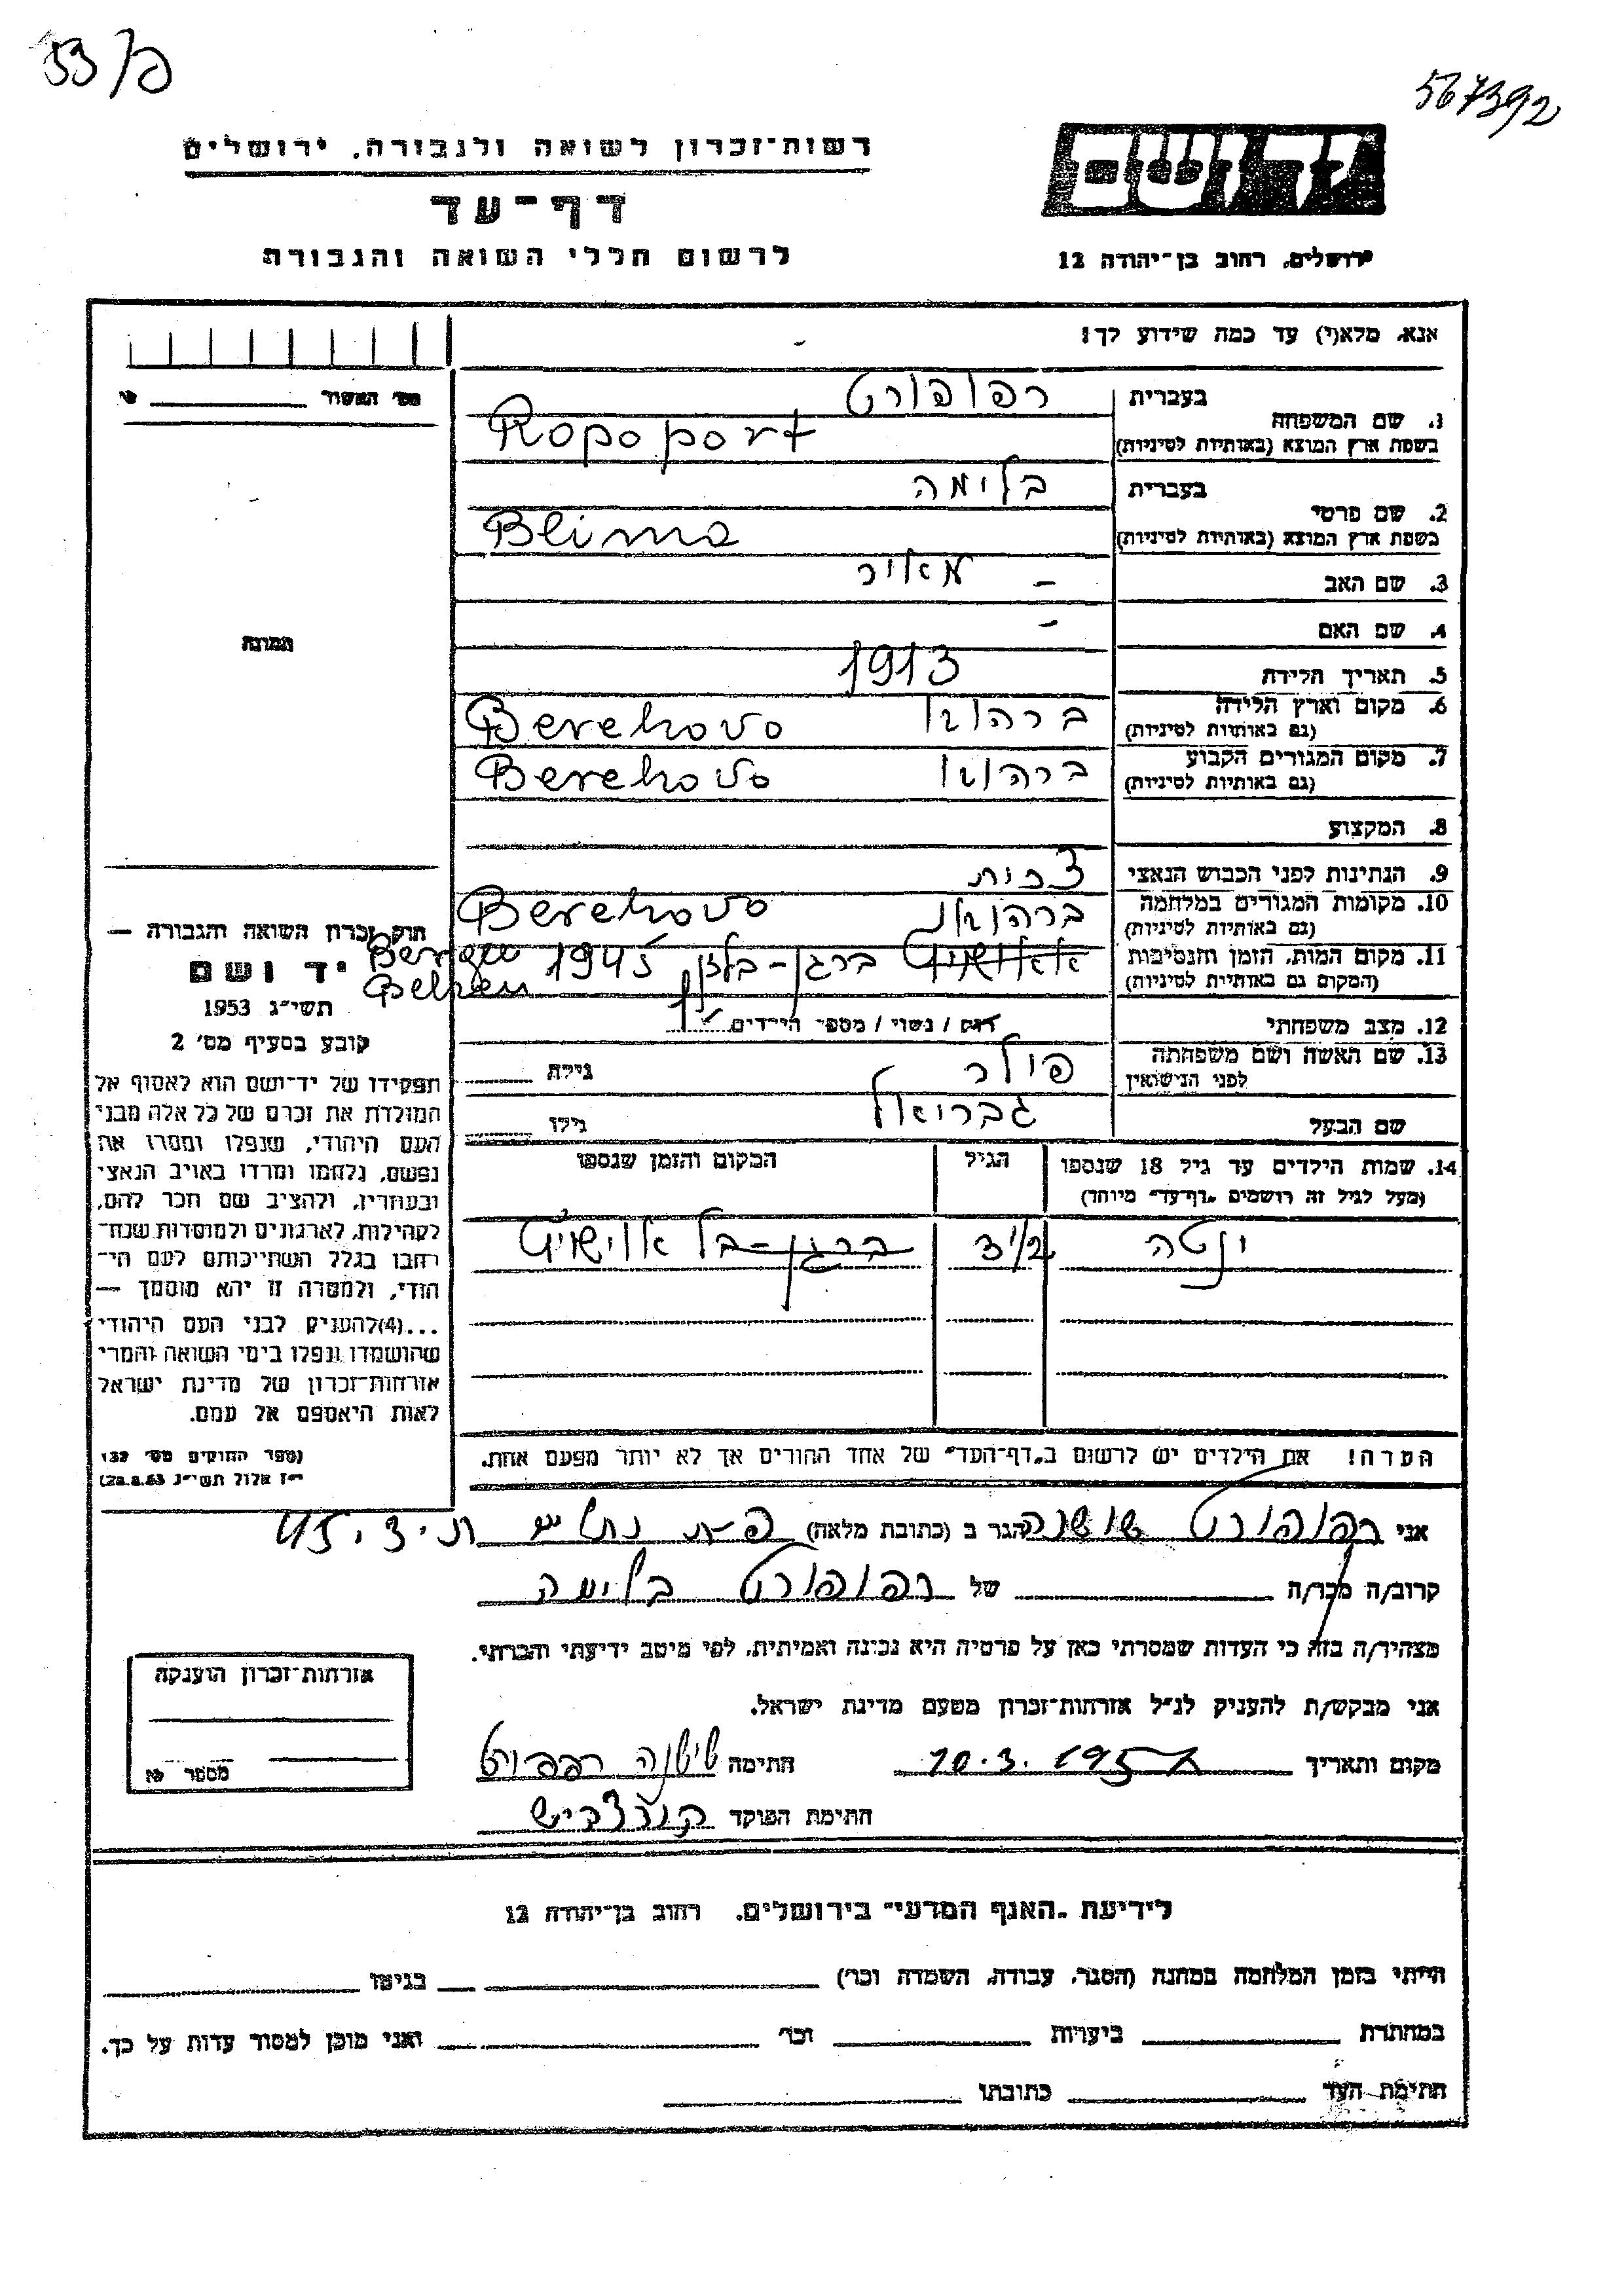 53/פ
567392
רשות־זכרון לשואה ולגבורה, ירושלים
יד ושם
דף־עד
לרשום חללי השואה והגבורה
ירושלים, רחוב בן־יהודה 12
אנא, מלא(י) עד כמה שידוע לך!
מס׳ האשור
1. שם המשפחה
בעברית רפופורט
בשפת ארץ המוצא (באותיות לטיניות) Ropoport
2. שם פרטי
בעברית בלימה
בשפת ארץ המוצא (באותיות לטיניות) Blima
3. שם האב – מאיר
4. שם האם –
5. תאריך הלידה 1913
6. מקום וארץ הלידה
(גם באותיות לטיניות) ברהובו Berehovo
7. מקום המגורים הקבוע
(גם באותיות לטיניות) ברהובו Berehovo
8. המקצוע
9. הנתינות לפני הכבוש הנאצי צכית
10. מקומות המגורים במלחמה
(גם באותיות לטיניות) ברהובו Berehovo
11. מקום המות, הזמן והנסיבות
(המקום גם באותיות לטיניות) ברגן-בלזן 1945 Bergen Belzen
12. מצב משפחתי רווק / נשוי / מספר הילדים 1
13. שם האשה ושם משפחתה
לפני הנישואין פולר גילה
שם הבעל גבריאל גילו
14. שמות הילדים עד גיל 18 שנספו
(מעל לגיל זה רושמים "דף־עד" מיוחד)
הגיל
המקום והזמן שנספו
יוטה
ברגן-בל אוישויץ
הערה! את הילדים יש לרשום ב"דף־העד" של אחד ההורים אך לא יותר מפעם אחת.
תמונה
חוק זכרון השואה והגבורה —
יד ושם
תשי״ג 1953
קובע בסעיף מס׳ 2
תפקידו של יד־ושם הוא לאסוף אל
המולדת את זכרם של כל אלה מבני
העם היהודי, שנפלו ומסרו את
נפשם, נלחמו ומרדו באויב הנאצי
ובעוזריו, ולהציב שם וזכר להם,
לקהילות, לארגונים ולמוסדות שנח־
רבו בגלל השתייכותם לעם הי־
הודי, ולמטרה זו יהא מוסמך —
...(4)להעניק לבני העם היהודי
שהושמדו ונפלו בימי השואה והמרי
אזרחות־זכרון של מדינת ישראל
לאות היאספם אל עמם.
(ספר החוקים מס׳ 132
י״ז אלול תשי״ג 28.8.53)
אני רפופורט שושנה הגר ב (כתובת מלאה) ת.ד. 45
קרוב/ה מכר/ה של רפופורט בלימה
מצהיר/ה בזה כי העדות שמסרתי כאן על פרטיה היא נכונה ואמיתית, לפי מיטב ידיעתי והכרתי.
אני מבקש/ת להעניק לנ״ל אזרחות־זכרון מטעם מדינת ישראל.
מקום ותאריך 10.3.195 חתימה שושנה רפפורט
חתימת הפוקד
אזרחות־זכרון הוענקה
מספר
לידיעת "האגף המדעי" בירושלים, רחוב בן־יהודה 12
הייתי בזמן המלחמה במחנה (הסגר, עבודה, השמדה וכו׳) בגיטו
במחתרת ביערות וכו׳ ואני מוכן למסור עדות על כך.
חתימת העד כתובתו